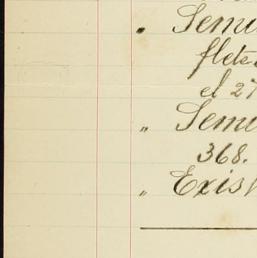 " Semi
flete
el 27
" Semi
368.
" Exist